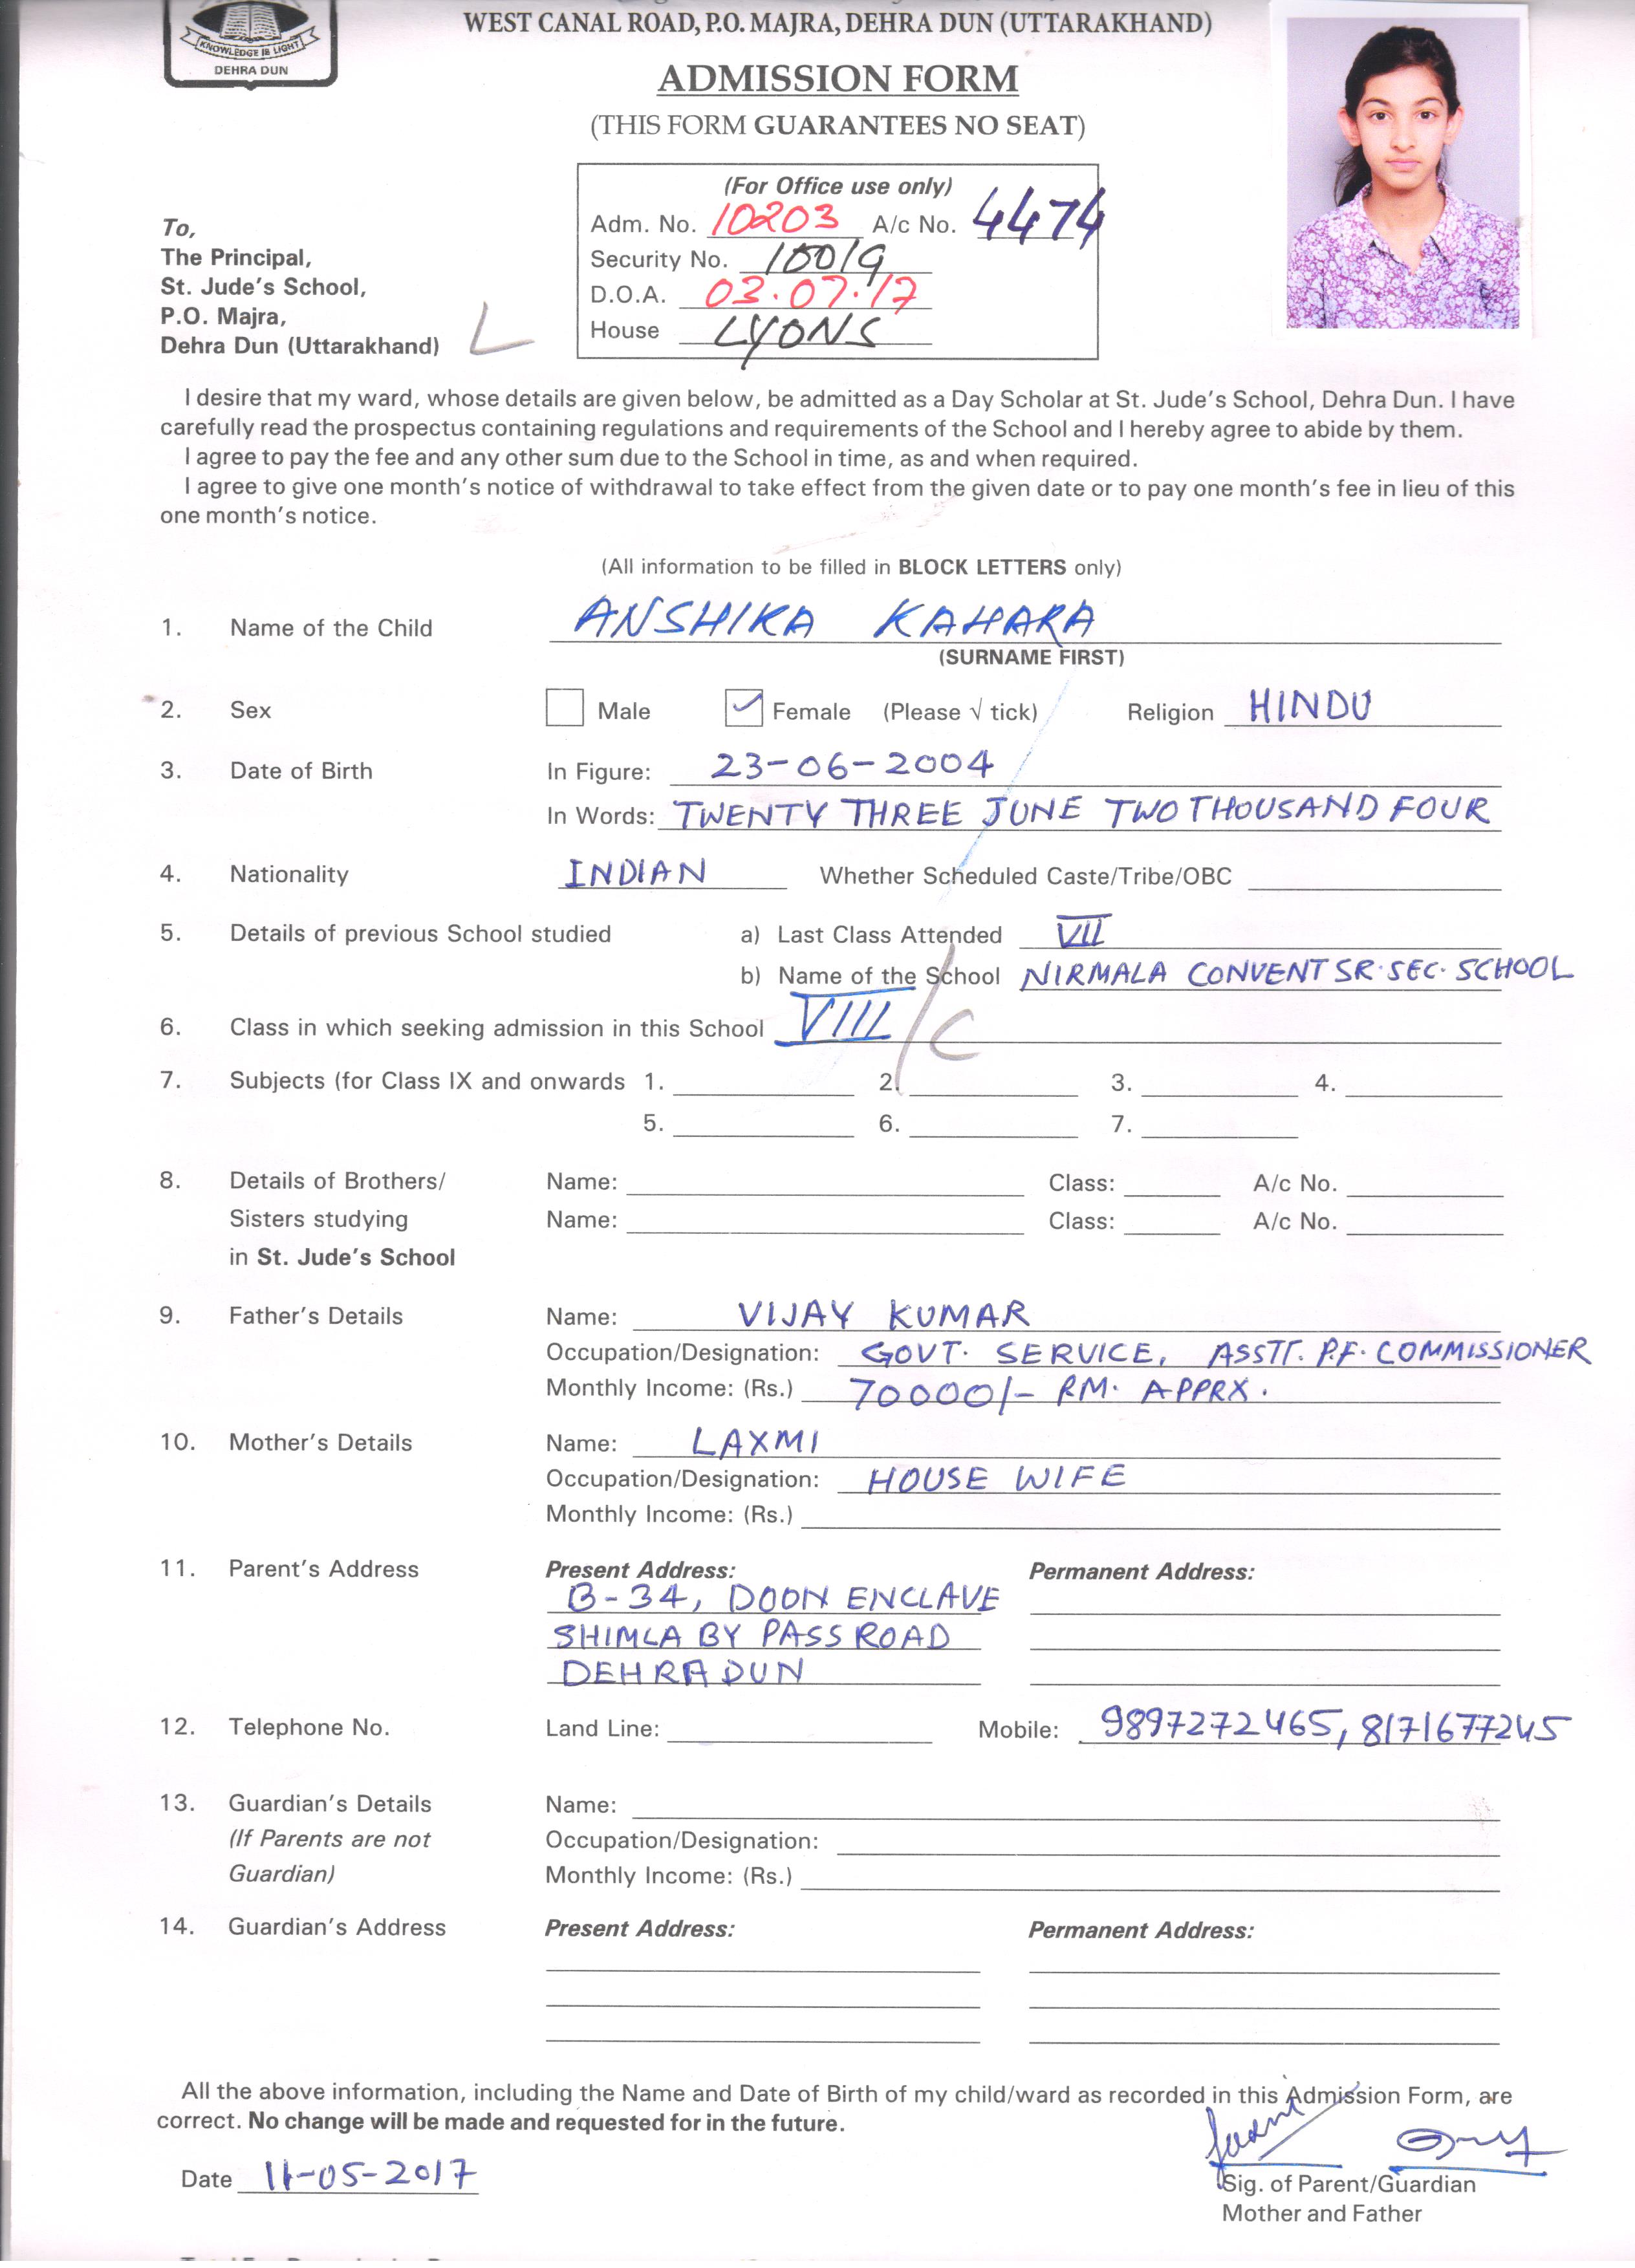 KNOWLEDGE IS LIGHT
DEHRA DUN
WEST CANAL ROAD, P.O. MAJRA, DEHRA DUN (UTTARAKHAND)
ADMISSION FORM
(THIS FORM GUARANTEES NO SEAT)
(For Office use only)
Adm. No. 10203 A/c No. 4474
Security No. 10019
D.O.A. 03.07.17
House LYONS
To,
The Principal,
St. Jude's School,
P.O. Majra,
Dehra Dun (Uttarakhand) L
I desire that my ward, whose details are given below, be admitted as a Day Scholar at St. Jude's School, Dehra Dun. I have
carefully read the prospectus containing regulations and requirements of the School and I hereby agree to abide by them.
I agree to pay the fee and any other sum due to the School in time, as and when required.
I agree to give one month's notice of withdrawal to take effect from the given date or to pay one month's fee in lieu of this
one month's notice.
(All information to be filled in BLOCK LETTERS only)
1. Name of the Child ANSHIKA KAHARA
(SURNAME FIRST)
2. Sex Male Female (Please √ tick) Religion HINDU
3. Date of Birth In Figure: 23-06-2004
In Words: TWENTY THREE JUNE TWO THOUSAND FOUR
4. Nationality INDIAN Whether Scheduled Caste/Tribe/OBC
5. Details of previous School studied a) Last Class Attended VII
b) Name of the School NIRMALA CONVENT SR. SEC. SCHOOL
6. Class in which seeking admission in this School VIII/C
7. Subjects (for Class IX and onwards 1. 2. 3. 4.
5. 6. 7.
8. Details of Brothers/ Name: Class: A/c No.
Sisters studying Name: Class: A/c No.
in St. Jude's School
9. Father's Details Name: VIJAY KUMAR
Occupation/Designation: GOVT. SERVICE, ASSTT. P.F. COMMISSIONER
Monthly Income: (Rs.) 70000/- RM. APPRX.
10. Mother's Details Name: LAXMI
Occupation/Designation: HOUSE WIFE
Monthly Income: (Rs.)
11. Parent's Address Present Address: Permanent Address:
B-34, DOON ENCLAVE
SHIMLA BY PASS ROAD
DEHRADUN
12. Telephone No. Land Line: Mobile: 9897272465, 8171677245
13. Guardian's Details Name:
(If Parents are not Occupation/Designation:
Guardian) Monthly Income: (Rs.)
14. Guardian's Address Present Address: Permanent Address:
All the above information, including the Name and Date of Birth of my child/ward as recorded in this Admission Form, are
correct. No change will be made and requested for in the future.
Date 11-05-2017
Sig. of Parent/Guardian
Mother and Father